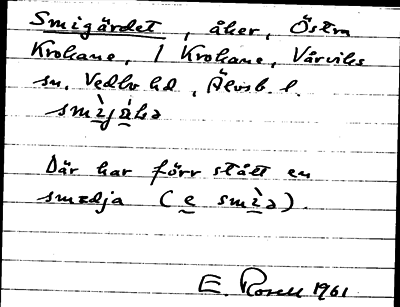 Smigärdet, åker, Östra
Krokane, / Krokane, Vårviks
sn. Vedbo hd, Älvsb. l.
Där har förr stått en
smedja (e smìa).
E. Rosell 1961